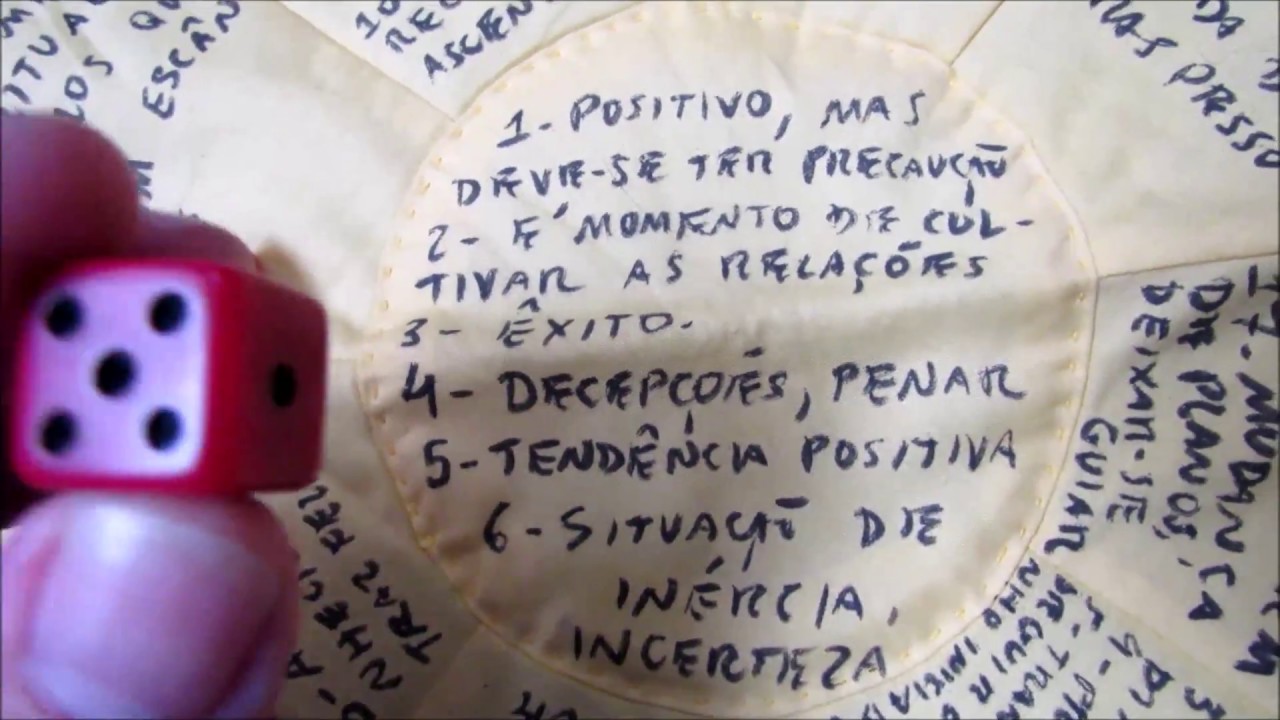 1- POSITIVO, MAS
DEVE-SE TER PRECAUÇÃO
2- É MOMENTO DE CUL-
TIVAR AS RELAÇÕES
3- ÊXITO.
4- DECEPÇÕES, PENAR
5- TENDÊNCIA POSITIVA
6- SITUAÇÃO DE
INÉRCIA,
INCERTEZA
ESCÂN
10
REC
ASCEN
MAS PRESSO
17. MUDANÇA
DE PLANOS,
DEIXAR-SE
GUIAR
SEGUIR
NHECI
TRAZ